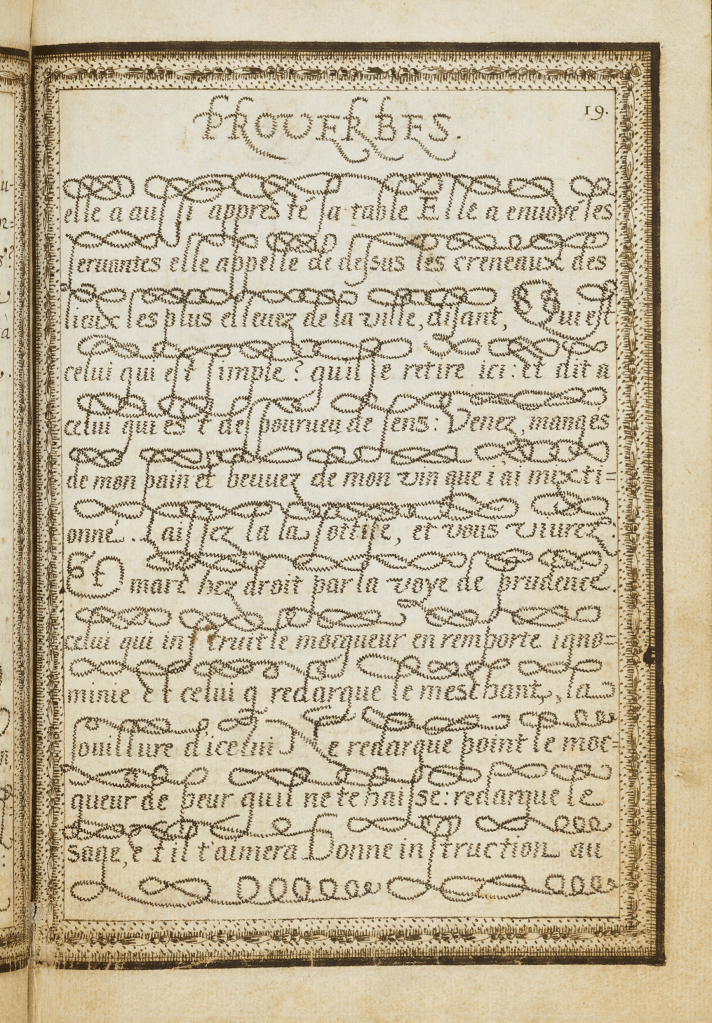 PROVERBES.
19.
elle a aussi appresté sa table Elle a envoyé ses
servantes elle appelle de dessus les creneaux des
lieux les plus elleuez de la ville, disant, Qui est
celui qui est simple? quil se retire ici: et dit a
celui qui est despourueu de sens: Venez, manges
de mon pain et beuuez de mon vin que i ai mixti=
onné.. Laissez la la sottise, et vous viurez.
Et marchez droit par la voye de prudence.
celui qui instruit le mocqueur en remporte igno=
minie et celui q redargue le meschant, la
souillure dicelui Ne redargue point le moc=
queur de peur quil ne te haisse: redargue le
sage, et il t'aimera Donne instruction au